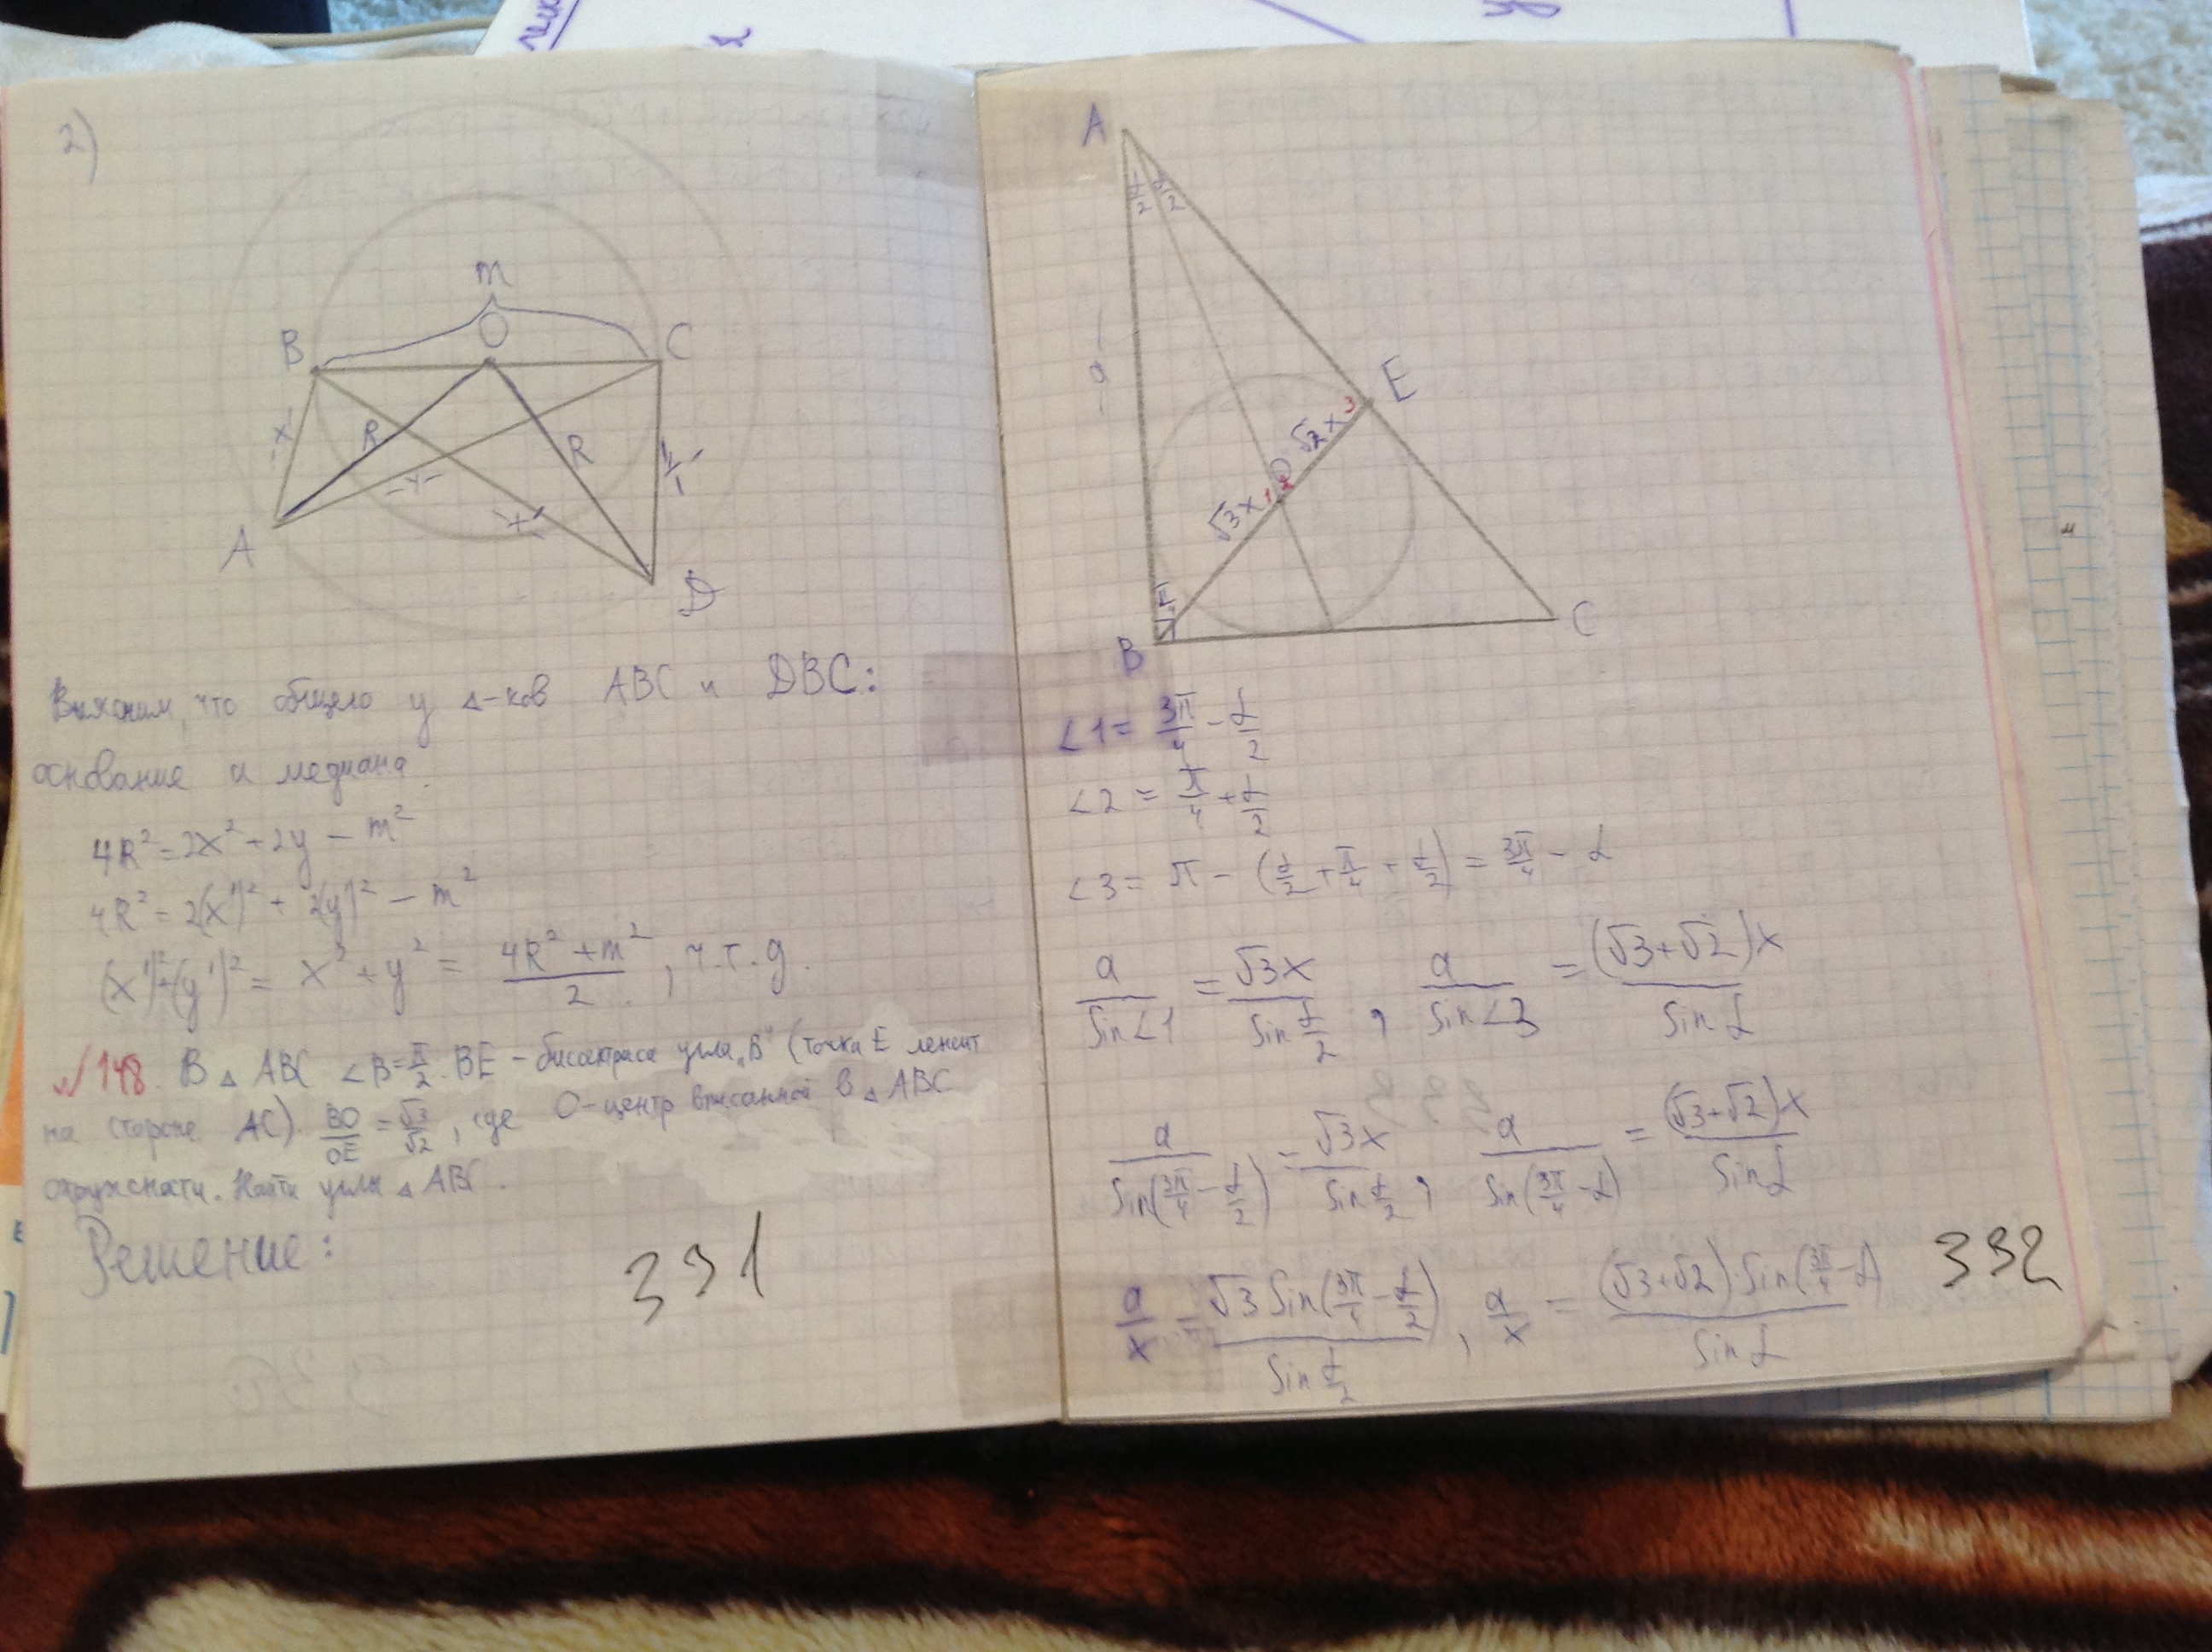 2)
m
B O C
x R R y'
y x'
A D
Выясним, что общего у Δ-ков ABC и DBC:
основание и медиана.
4R² = 2x² + 2y - m²
4R² = 2(x')² + 2(y')² - m²
(x')² + (y')² = x² + y² = (4R² + m²)/2, ч.т.д.
√148. В Δ ABC ∠B = π/2. BE - биссектриса угла „B" (точка E лежит
на стороне AC). BO/OE = √3/√2, где O - центр вписанной в Δ ABC
окружности. Найти углы Δ ABC.
Решение:
331
A
α/2 α/2
a
E
3
√2x
O
√3x 1 2
π/4
B C
∠1 = 3π/4 - α/2
∠2 = π/4 + α/2
∠3 = π - (α/2 + π/4 + α/2) = 3π/4 - α
a/sin∠1 = √3x/sin α/2 , a/sin∠3 = (√3+√2)x/sin α
a/sin(3π/4 - α/2) = √3x/sin α/2 , a/sin(3π/4 - α) = (√3+√2)x/sin α
a/x = √3 sin(3π/4 - α/2)/sin α/2 , a/x = (√3+√2)·sin(3π/4 - α)/sin α
332